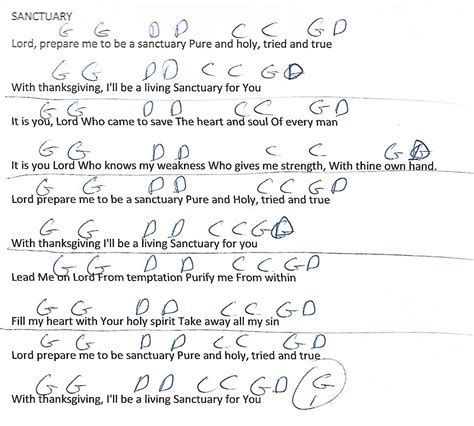 SANCTUARY
G G D D C C G D
Lord, prepare me to be a sanctuary Pure and holy, tried and true
G G D D C C G D
With thanksgiving, I'll be a living Sanctuary for You
G G D D C C G D
It is you, Lord Who came to save The heart and soul Of every man
G G D D C C G D
It is you Lord Who knows my weakness Who gives me strength, With thine own hand.
G G D D C C G D
Lord prepare me to be a sanctuary Pure and Holy, tried and true
G G D D C C G D
With thanksgiving I'll be a living Sanctuary for you
G G D D C C G D
Lead Me on Lord From temptation Purify me From within
G G D D C C G D
Fill my heart with Your holy spirit Take away all my sin
G G D D C C G D
Lord prepare me to be sanctuary Pure and holy, tried and true
G G D D C C G D G
With thanksgiving, I'll be a living Sanctuary for You